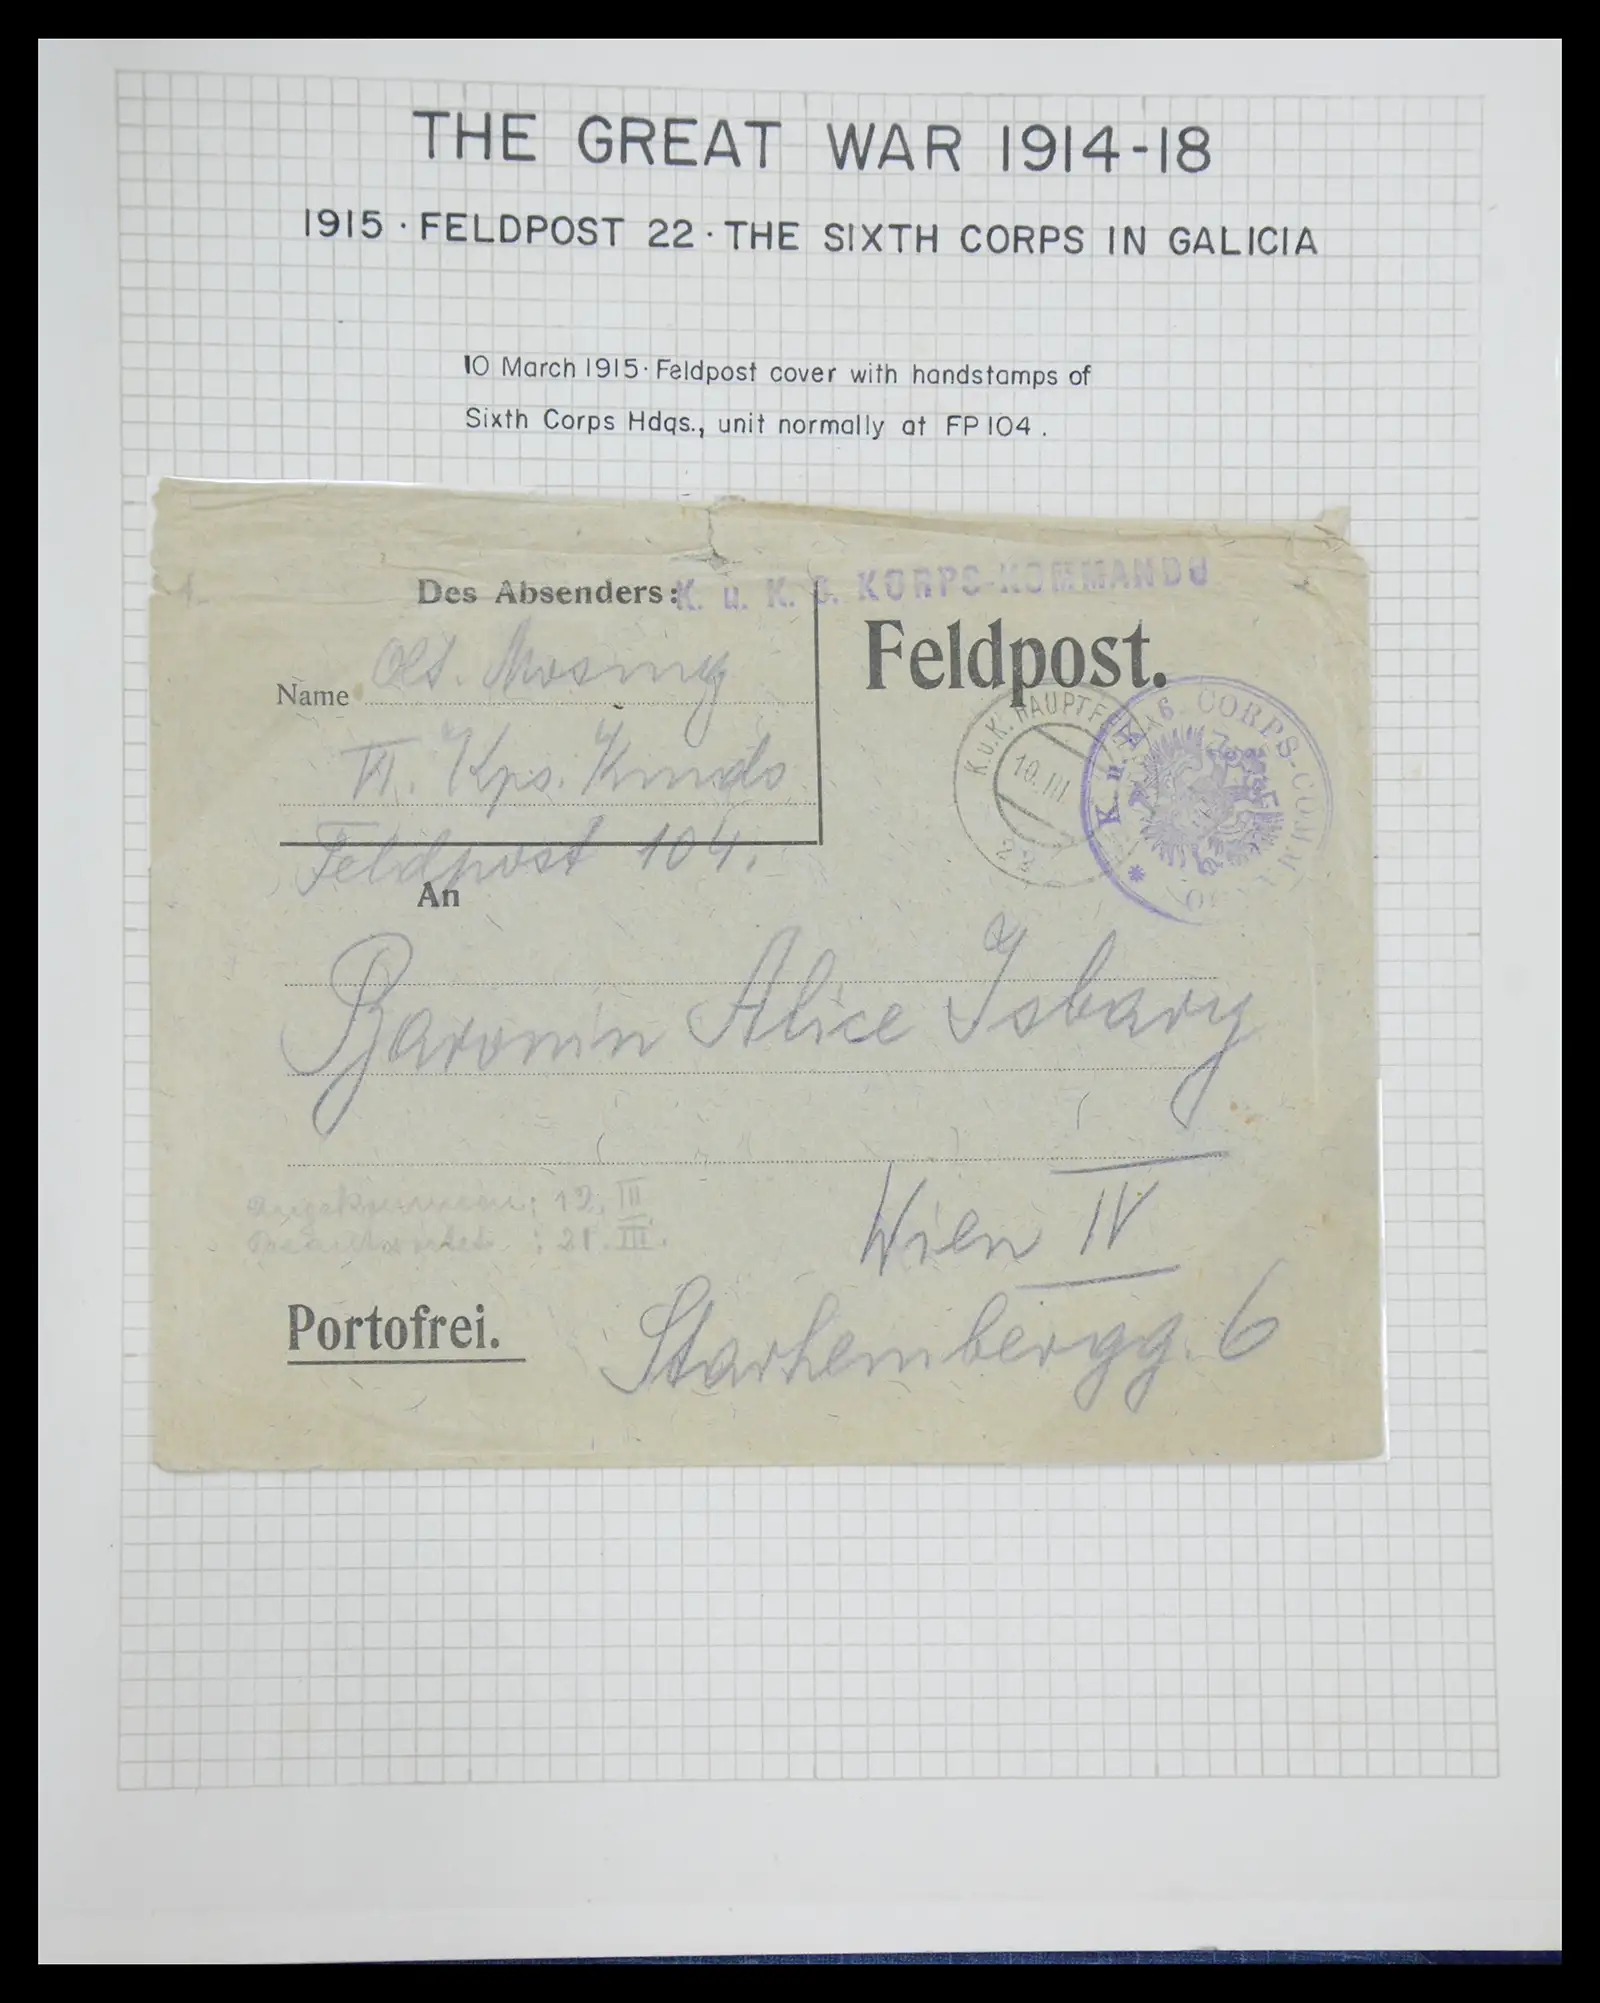 THE GREAT WAR 1914-18
1915 · FELDPOST 22 · THE SIXTH CORPS IN GALICIA
10 March 1915 · Feldpost cover with handstamps of
Sixth Corps Hdqs., unit normally at FP 104 .
Des Absenders:
K. u. K. 6. KORPS-KOMMANDO
Feldpost.
Name Olt.
VI. Kps. Kmdo
Feldpost 104.
K.u.K. HAUPTFE
10.III
22
K. u. K. 6. CORPS-COMMANDO
An
Baronin Alice Isbary
Angekommen: 12. III
Beantwortet : 21. III.
Wien IV
Portofrei.
Starhembergg. 6